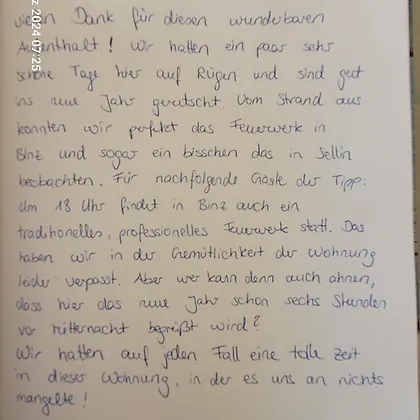 z 2024 07:25
vielen Dank für diesen wunderbaren
Aufenthalt! Wir hatten ein paar sehr
schöne Tage hier auf Rügen und sind gut
ins neue Jahr gerutscht. Vom Strand aus
konnten wir perfekt das Feuerwerk in
Binz und sogar ein bisschen das in Sellin
beobachten. Für nachfolgende Gäste der Tipp:
Um 18 Uhr findet in Binz auch ein
traditionelles, professionelles Feuerwerk statt. Das
haben wir in der Gemütlichkeit der Wohnung
leider verpasst. Aber wer kann denn auch ahnen,
dass hier das neue Jahr schon sechs Stunden
vor Mitternacht begrüßt wird?
Wir hatten auf jeden Fall eine tolle Zeit
in dieser Wohnung, in der es uns an nichts
mangelte!